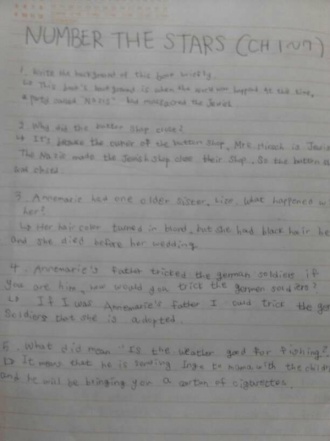 NUMBER THE STARS (CH 1~7)
1. Write the background of this book briefly.
↳ This book's background is when the world war happed to the time,
a party called "NAZIS" had massacred the Jewish
2. Why did the button shop close?
↳ It's because the owner of the button shop, Mrs Hirsch is Jewish
The Nazis made the Jewish shop close their shop. So the button shop
had closed
3. Annemarie had one older sister, Lise. What happened to
her?
↳ Her hair color turned in blond, but she had black hair
and she died before her wedding
4. Annemarie's father tricked the german soldiers if
you are him, how would you trick the german soldiers?
↳ If I was Annemarie's father I said trick the
Soldiers that she is adopted.
5. What did mean "Is the weather good for fishing?
↳ It means that he is sending Inge to Mama with the
and he will be bringing you a carton of cigarettes.